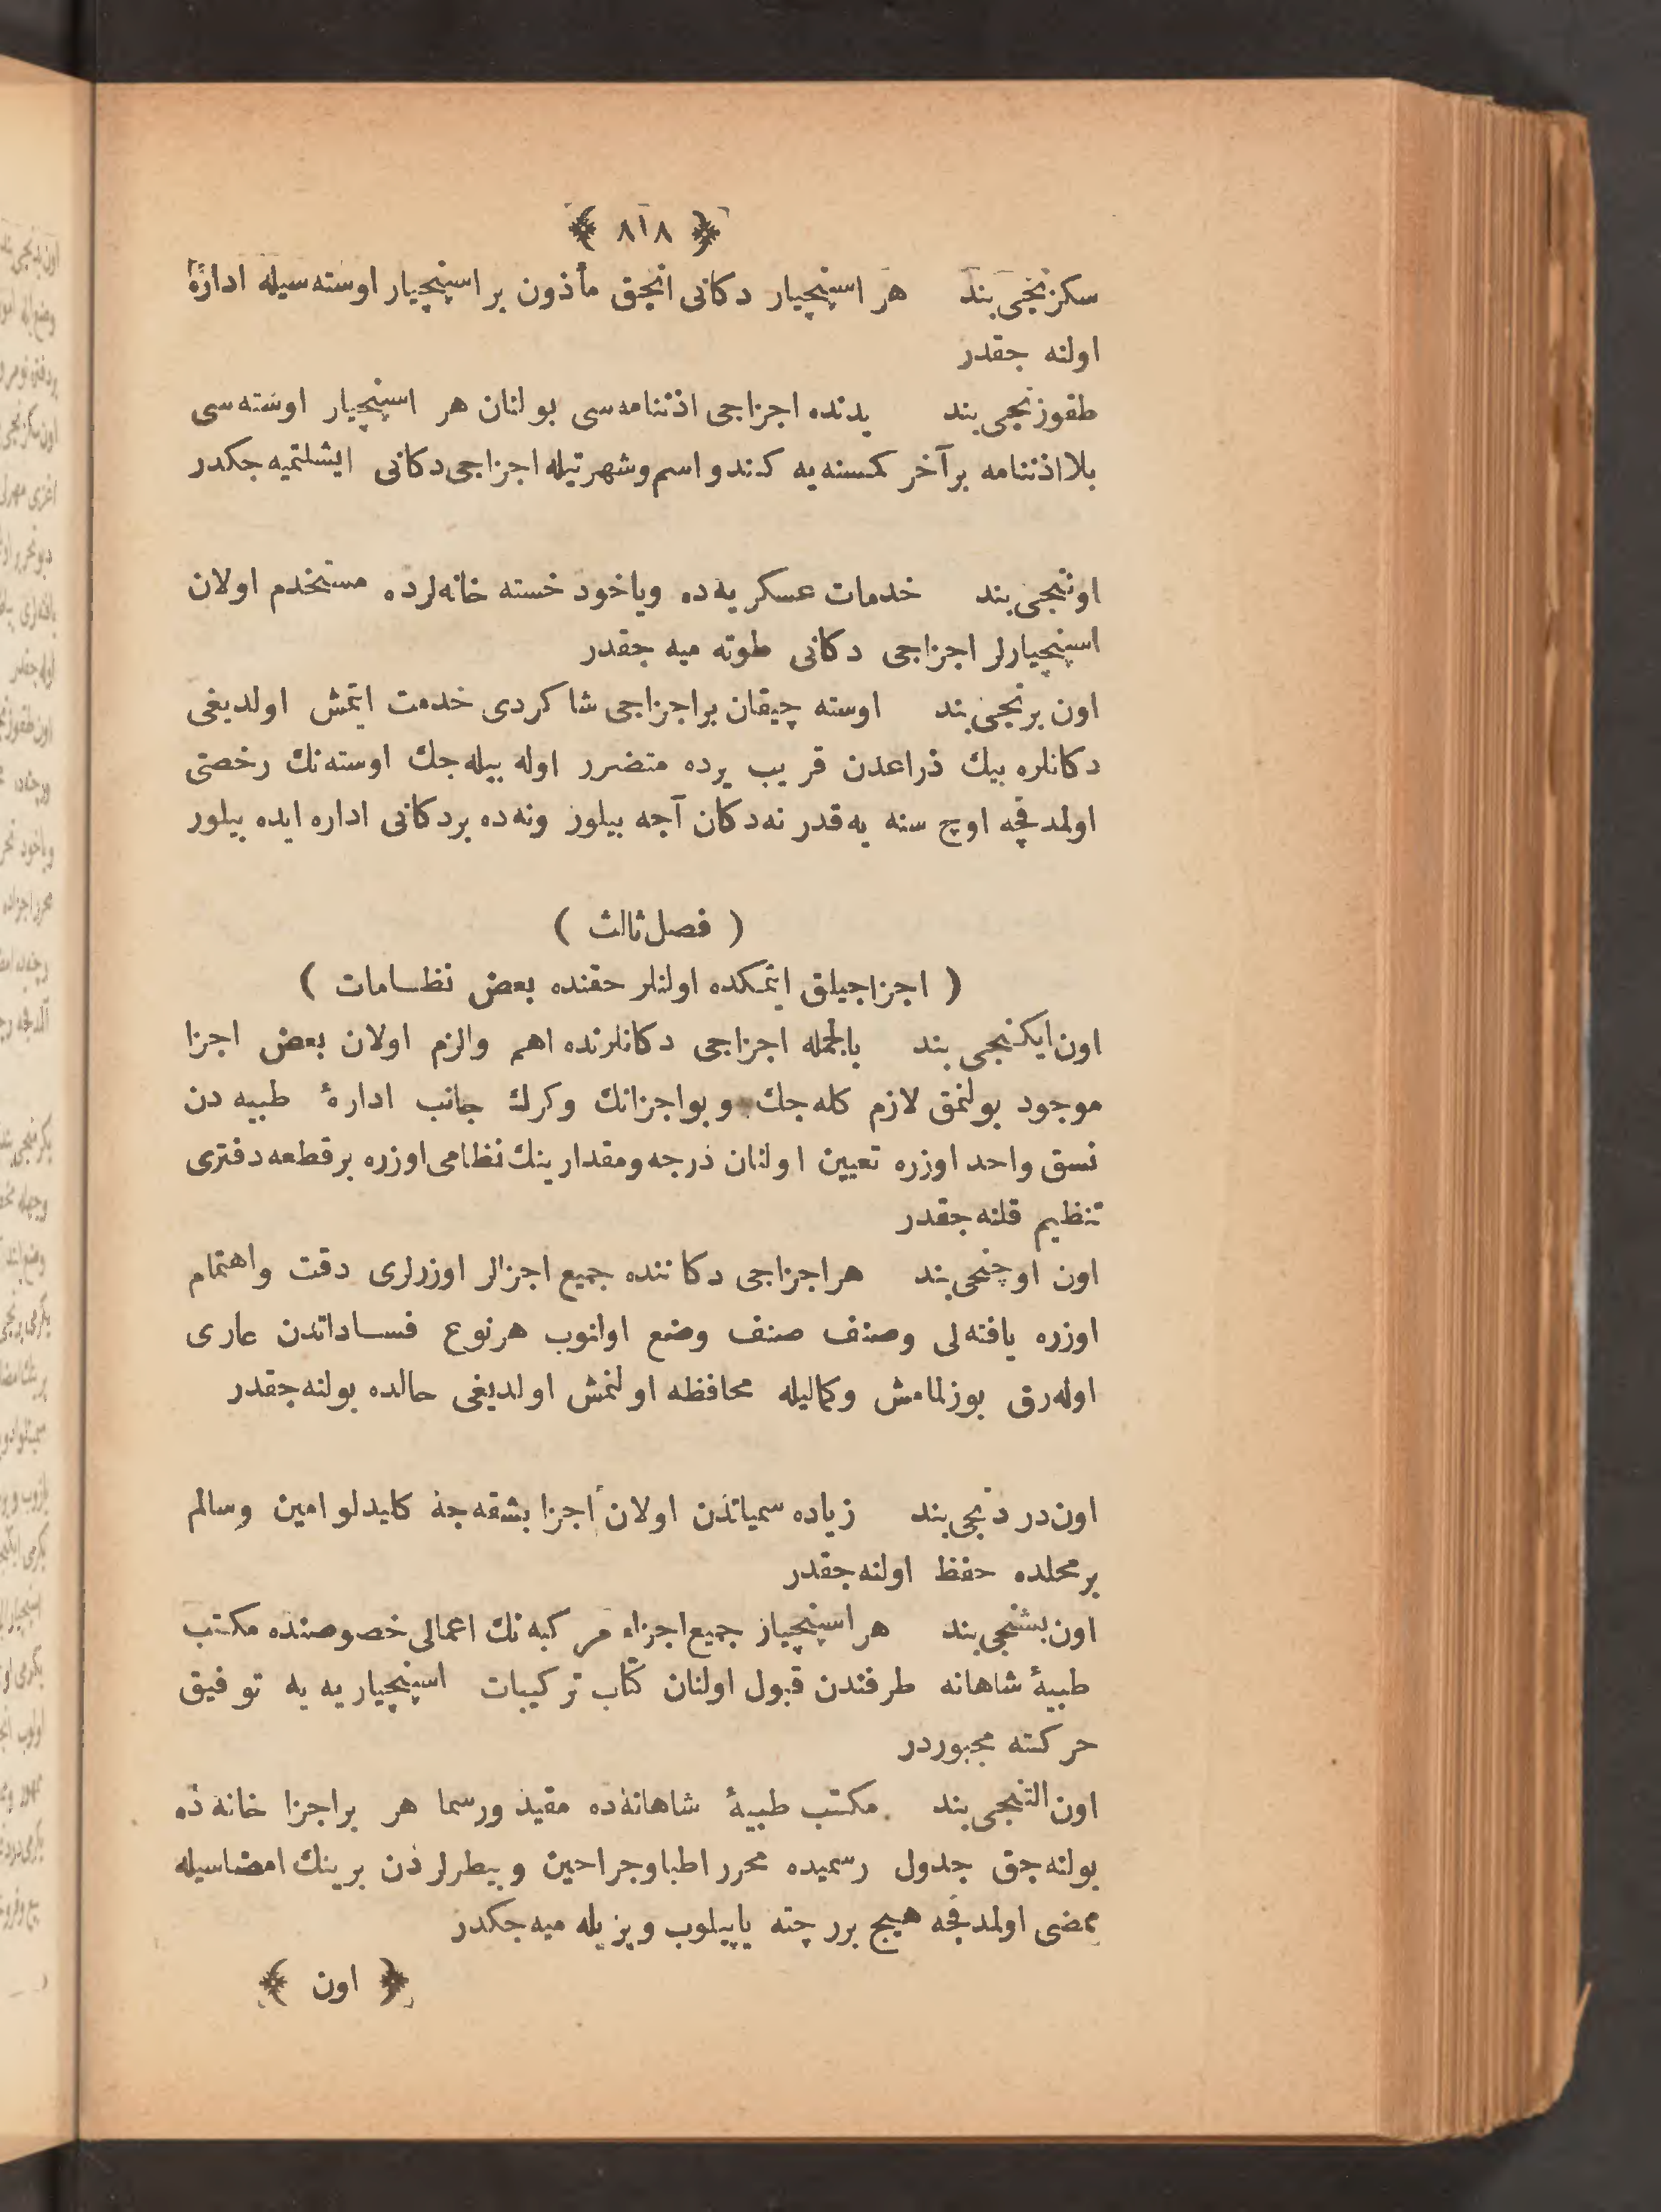 ﴿ ٨١٨ ﴾
سكزنجی بند هر اسپنچیار دكانی انجق مأذون بر اسپنچیار اوسته سیله اداره
اولنه جقدر
طقوزنجی بند یدنده اجزاجی اذننامه سی بولنان هر اسپنچیار اوسته سی
بلا اذننامه بر آخر كمسنه یه كندو اسم و شهرتیله اجزاجی دكانی ایشلتمیه جكدر
اوننجی بند خدمات عسكریه ده ویاخود خسته خانه لرده مستخدم اولان
اسپنچیارلر اجزاجی دكانی طوته میه جقدر
اون برنجی بند اوسته چیقان بر اجزاجی شاكردی خدمت ایتمش اولدیغی
دكانلره بیك ذراعدن قریب یرده متضرر اوله بیله جك اوسته نك رخصتی
اولمدقچه اوچ سنه یه قدر نه دكان آچه بیلور ونه ده بر دكانی اداره ایده بیلور
( فصل ثالث )
( اجزاجیلق ایتمكده اولنلر حقنده بعض نظامات )
اون ایكنجی بند بالجمله اجزاجی دكانلرنده اهم والزم اولان بعض اجزا
موجود بولنمق لازم كله جك وبو اجزانك وكرك جانب ادارهٔ طبیه دن
نسق واحد اوزره تعیین اولنان درجه ومقدارینك نظامی اوزره بر قطعه دفتری
تنظیم قلنه جقدر
اون اوچنجی بند هر اجزاجی دكاننده جمیع اجزالر اوزرلری دقت واهتمام
اوزره یافته لی وصنف صنف وضع اولنوب هر نوع فساداتدن عاری
اوله رق بوزلمامش وكمالیله محافظه اولنمش اولدیغی حالده بولنه جقدر
اون دردنجی بند زیاده سمیاتدن اولان اجزا بشقه جه كلیدلو امین وسالم
بر محلده حفظ اولنه جقدر
اون بشنجی بند هر اسپنچیار جمیع اجزاء مركبه نك اعمالی خصوصنده مكتب
طبیهٔ شاهانه طرفندن قبول اولنان كتاب تركیبات اسپنچیاریه یه توفیق
حركته مجبوردر
اون التنجی بند مكتب طبیهٔ شاهانه ده مقید ورسما هر بر اجزا خانه ده
بولنه جق جدول رسمیده محرر اطبا وجراحین وبیطرلردن برینك امضاسیله
ممضی اولمدقچه هیچ بر رچته یاپیلوب ویریله میه جكدر
﴿ اون ﴾